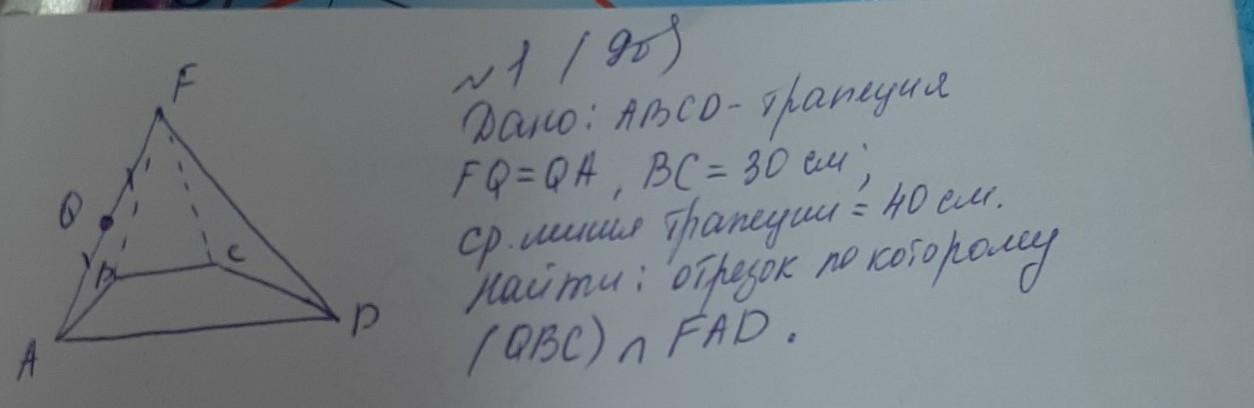 F
Q
B
C
A
D
~1 (дб)
Дано: ABCD - трапеция
FQ=QA, BC=30 см;
ср. линия трапеции = 40 см.
Найти: отрезок по которому
(QBC) ∩ FAD.